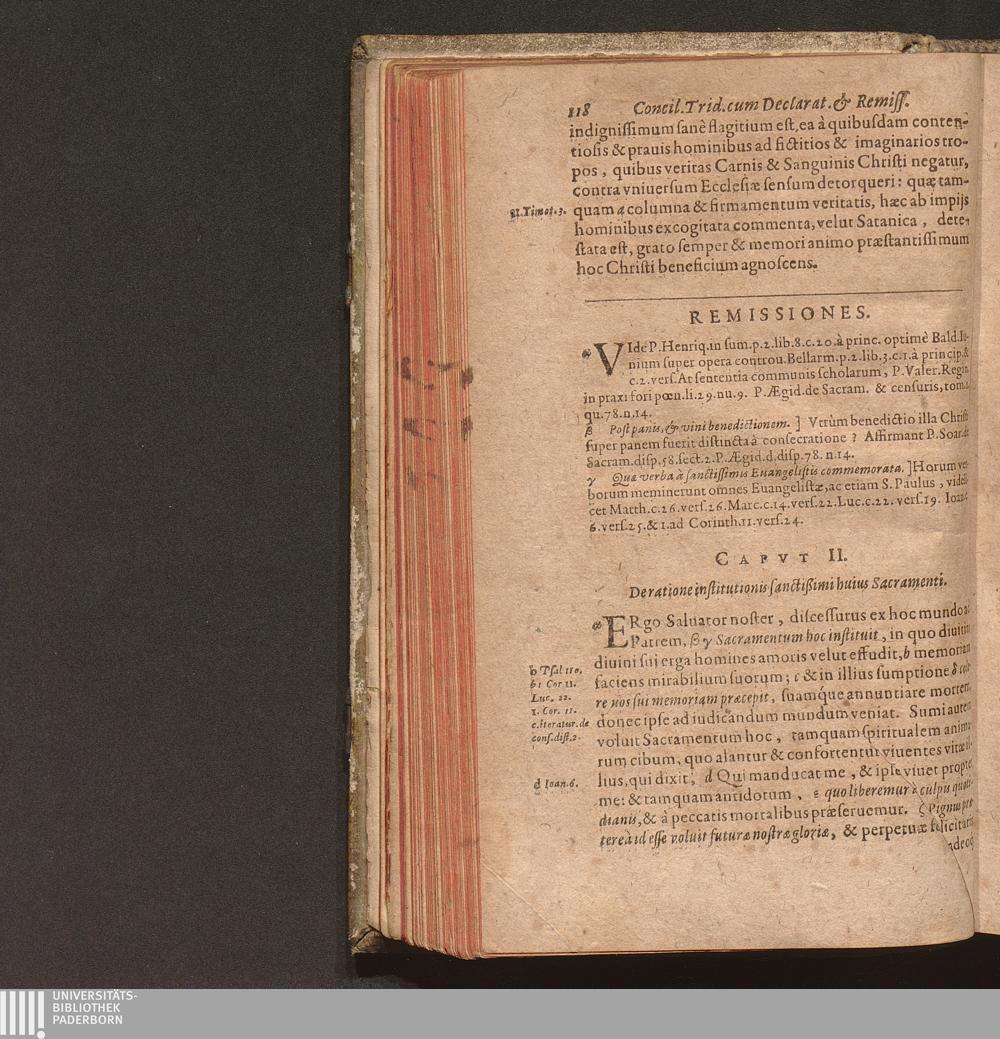 118 Concil.Trid.cum Declarat.& Remiss.
indignissimum sanè flagitium est, ea à quibusdam conten-
tiosis & prauis hominibus ad fictitios & imaginarios tro-
pos, quibus veritas Carnis & Sanguinis Christi negatur,
contra vniuersum Ecclesiæ sensum detorqueri: quæ tam-
a1.Timot.3. quam a columna & firmamentum veritatis, hæc ab impijs
hominibus excogitata commenta, velut Satanica, dete-
stata est, grato semper & memori animo præstantissimum
hoc Christi beneficium agnoscens.
REMISSIONES.
α VIde P. Henriq.in sum.p.2.lib.8.c.20.à princ. optimè Bald.Iu-
nium super opera controu.Bellarm.p.2.lib.3.c.1.à princip.&
c.2.vers.At sententia communis scholarum, P.Valer.Regin.
in praxi fori pœn.li.29.nu.9. P.Ægid.de Sacram. & censuris, tom.
qu.78.n.14.
β Post panis, & vini benedictionem. ] Vtrùm benedictio illa Christi
super panem fuerit distincta à consecratione? Affirmant P.Soar.de
Sacram.disp.58.sect.2.P.Ægid.d.disp.78. n.14.
γ Quæ verba à sanctissimis Euangelistis commemorata. ]Horum ver-
borum meminerunt omnes Euangelistæ, ac etiam S. Paulus, videli-
cet Matth.c.26.vers.26.Marc.c.14.vers.22.Luc.c.22.vers.19. Ioan.c
6.vers.25.& 1.ad Corinth.11.vers.24.
CAPVT II.
De ratione institutionis sanctißimi huius Sacramenti.
α ERgo Saluator noster, discessurus ex hoc mundo ad
Patrem, β γ Sacramentum hoc instituit, in quo diuitias
diuini sui erga homines amoris velut effudit, b memoriam
b Psal 110.
b1 Cor 11.
Luc. 22.
1. Cor. 11.
c.iteratur.de
cons.dist.2.
faciens mirabilium suorum; c & in illius sumptione δ cole-
re nos sui memoriam præcepit, suamq́ue annuntiare mortem,
donec ipse ad iudicandum mundum veniat. Sumi autem
voluit Sacramentum hoc, tamquam spiritualem anima-
rum cibum, quo alantur & confortentur viuentes vita il-
d Ioan.6. lius, qui dixit, d Qui manducat me, & ipse viuet propter
me: & tamquam antidotum, ε quo liberemur à culpis quoti-
dianis, & à peccatis mortalibus præseruemur. ζ Pignus præ-
terea id esse voluit futuræ nostræ gloriæ, & perpetuæ felicitatis
adeoq
UNIVERSITÄTS-
BIBLIOTHEK
PADERBORN